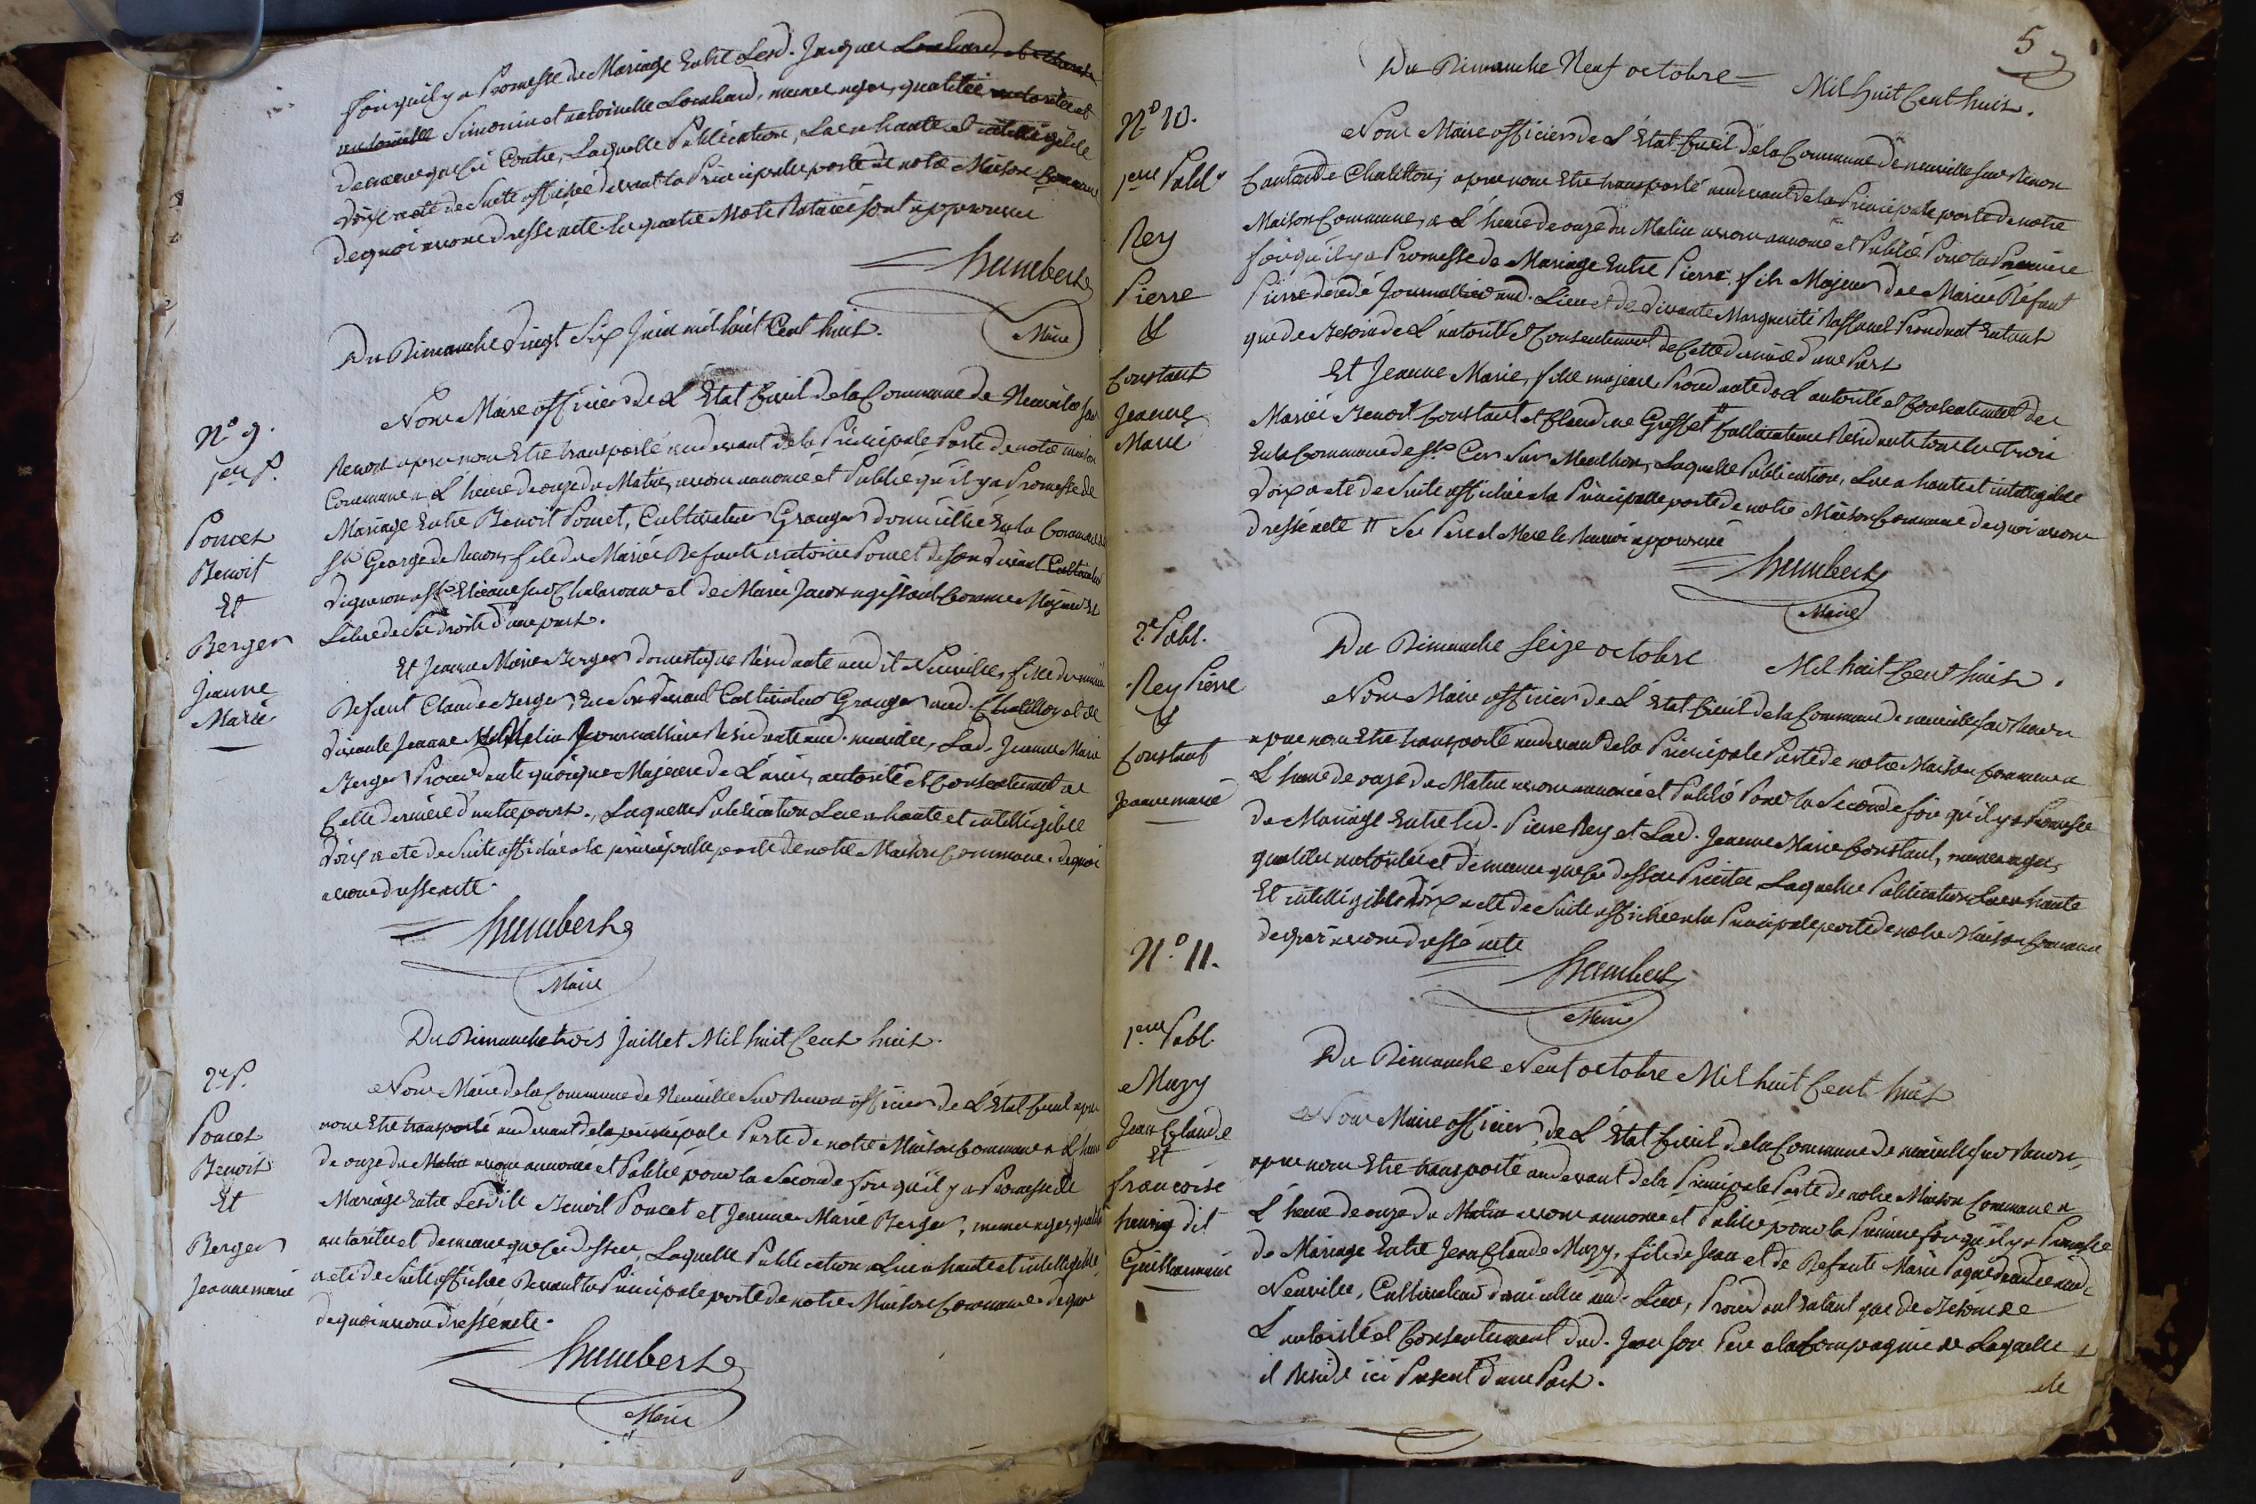 fois qu'il y a Promesse de Mariage Entre Lesd. Jacques Lombard, et
antoinette Simonin et antoinette Lombard, meme ages, qualitée autorité et
demeure que Ci Contre, Laquelle Publication, Lue a haute et intelligible
Voix acte de Suite affichée devant la Principalle porte de notre Maison Commune
de quoi avons dressé acte. les quatre Mots Raturés sont approuvés
humbert
Maire
Du Dimanche Vingt Six Juin mil huit Cent huit.
N.º 9.
1ere P.
Poncet
Benoit
Et
Berger
Jeanne
Marie
Nous Maire officier de L'Etat Civil de la Commune de Neuville sur
Renon apres nous Etre transporté au devant de la Principale Porte de notre maison
Commune a L'heure de onze du Matin, avons annoncé et Publié qu'il y a Promesse de
Mariage Entre Benoit Poncet, Cultivateur Granger domicillié En la Commune de
St. George de Renon, fils de Marié Defunt antoine Poncet de son vivant Cultivateur
Vigneron a St. Etienne sur Chalaronne et de Marie Jacon agissant Comme Majeur et
Libre de Ses droits d'une part.
Et Jeanne Marie Berger domestique Residante audit Neuville, fille de marié
Defunt Claude Berger En Son Vivant Cultivateur Granger aud. Chatillon et de
Vivante Jeanne Journalliere Residante aud. Lad. Jeanne Marie
Berger Procedante quoique Majeure de L'avis, autorité et Consentement de
Cette derniere d'autre part., Laquelle Publication Lue a haute et intelligible
Voix acte de Suite affichée a la principalle porte de notre Maison Commune. de quoi
avons dressé acte.
humbert
Maire
Du Dimanche trois Juillet Mil huit Cent huit.
2e P.
Poncet
Benoit
Et
Berger
Jeanne marie
Nous Maire de la Commune de Neuville Sur Renon officier de L'Etat Civil apres
nous Etre transporté au devant de la principale Porte de notre Maison Commune a L'heure
de onze du Matin avons annoncé et Publié pour la Seconde fois qu'il y a Promesse de
Mariage Entre Lesdits Benoit Poncet et Jeanne Marie Berger, meme ages, qualité
autorité et demeure que Ci dessus, Laquelle Publication Lue a haute et intelligible
acte de Suite affichée Devant la Principale porte de notre Maison Commune de quoi
de quoi avons dressé acte.
humbert
Maire
5
Du Dimanche Neuf octobre = Mil huit Cent huit.
N.º 10.
1ere Publ.
Rey
Pierre
&
Constant
Jeanne
Marie
Nous Maire officier de L'Etat Civil de la Commune de neuville sur Renon
Canton de Chatillon, apres nous Etre transporté au devant de la Principale porte de notre
Maison Commune, a L'heure de onze du Matin avons annoncé et Publié Pour la Premiere
fois qu'il y a Promesse de Mariage Entre Pierre, fils Majeur de Marié Défunt
Pierre décédé Journallier aud. Lieu et de Vivante Marguerite Procedant Entant
que de Besoin de L'autorité et Consentement de Cette derniere d'une Part
Et Jeanne Marie, fille majeure Procedante de L'autorité et Consentement de
Mariés Benoit Constant et Claudine Cultivateurs Residants tous les Trois
En la Commune de St. Cir Sur Menthon, Laquelle Publication, Lue a haute et intelligible
Voix acte de Suite affichée a la Principalle porte de notre Maison Commune de quoi avons
dressé acte # Ses Pere et Mere le Renvoi approuvé
humbert
Maire
2.e Publ.
Rey Pierre
&
Constant
Jeanne marie
Du Dimanche Seize octobre Mil huit Cent huit.
Nous Maire officier de L'Etat Civil de la Commune de neuville sur Renon
apres nous Etre transporté au devant de la Principale Porte de notre Maison Commune a
L'heure de onze du Matin avons annoncé et Publié Pour la Seconde fois qu'il y a Promesse
de Mariage Entre led. Pierre Rey et Lad. Jeanne Marie Constant, meme ages,
qualités autorités et demeure que Ci dessus Laquelle Publication Lue a haute
Et intelligible Voix acte de Suite affichée a la Principale porte de notre Maison Commune
de quoi avons dressé acte
humbert
Maire
N.º 11.
1.ere Publ.
Muzy
Jean Claude
Et
francoise
henry dit
Guillaumain
Du Dimanche Neuf octobre Mil huit Cent huit
Nous Maire officier de L'Etat Civil de la Commune de neuville sur Renon,
apres nous Etre transporté au devant de la Principale Porte de notre Maison Commune a
L'heure de onze du Matin avons annoncé et Publié pour la Premiere fois qu'il y a Promesse
de Mariage Entre Jean Claude Muzy, fils de Jean et de Defunte Marie décédée aud.
Neuville, Cultivateur domicillié aud. Lieu, Procedant Entant que de Besoin de
L'autorité et Consentement dud. Jean Son Pere a la Compagnie de Laquelle
il Reside ici Present d'une Part.